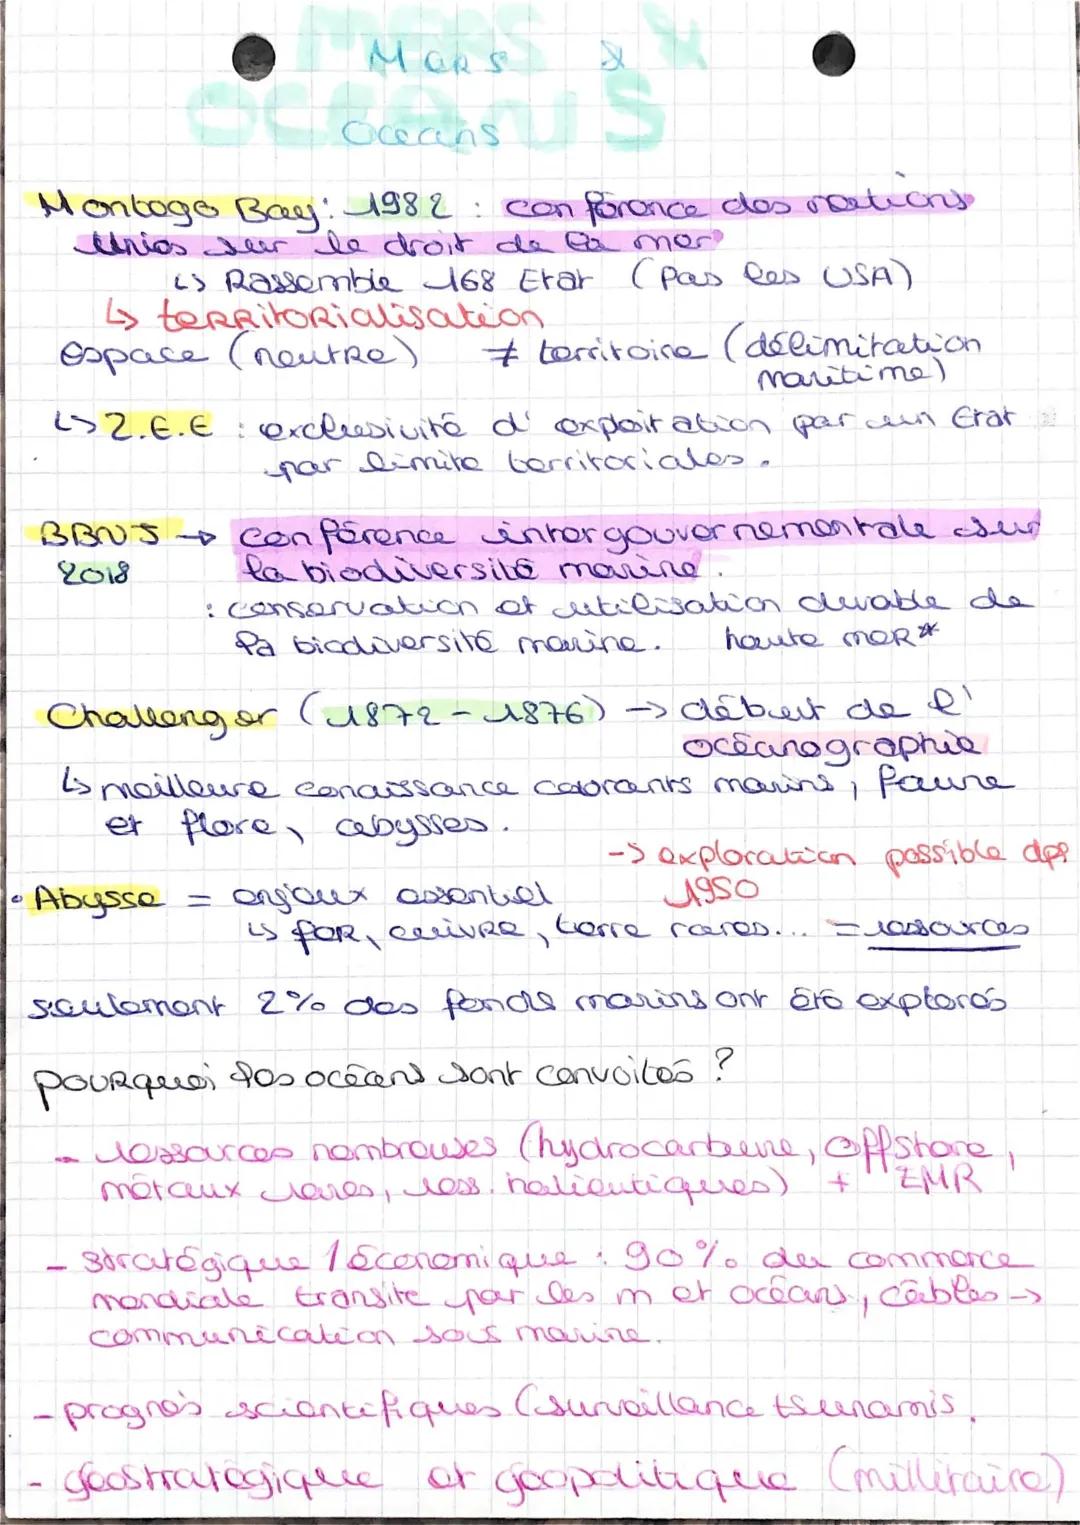 MERS &
OCEANS
Mers &
Oceans
Montego Bay : 1982 : conférence des nations
Unies sur le droit de la mer
↳ Rassemble 168 Etat (pas les USA)
↳ territorialisation
espace (neutre) ≠ territoire (délimitation
maritime)
↳ Z.E.E : exclusivité d' exploitation par un Etat
par limite territoriales.
BBNJ → conférence intergouvernementale sur
2018 la biodiversité marine.
: conservation et utilisation durable de
la biodiversité marine. haute mer*
Challenger (1872 - 1876) → début de l'
océanographie
↳ meilleure conaissance courants marins, faune
et flore, abysses.
-> exploration possible dps
1950
• Abysse = enjeux essentiel
↳ fer, cuivre, terre rares... = ressources
seulement 2% des fonds marins ont été explorés
pourquoi les océans sont convoités ?
- ressources nombreuses (hydrocarbure, offshore,
métaux rares, ress. halieutiques) + EMR
- stratégique / économique : 90% du commerce
mondiale transite par les m et océans, câbles ->
communication sous marine.
- progrès scientifiques (surveillance tsunamis.
- géostratégique et géopolitique (millitaire)